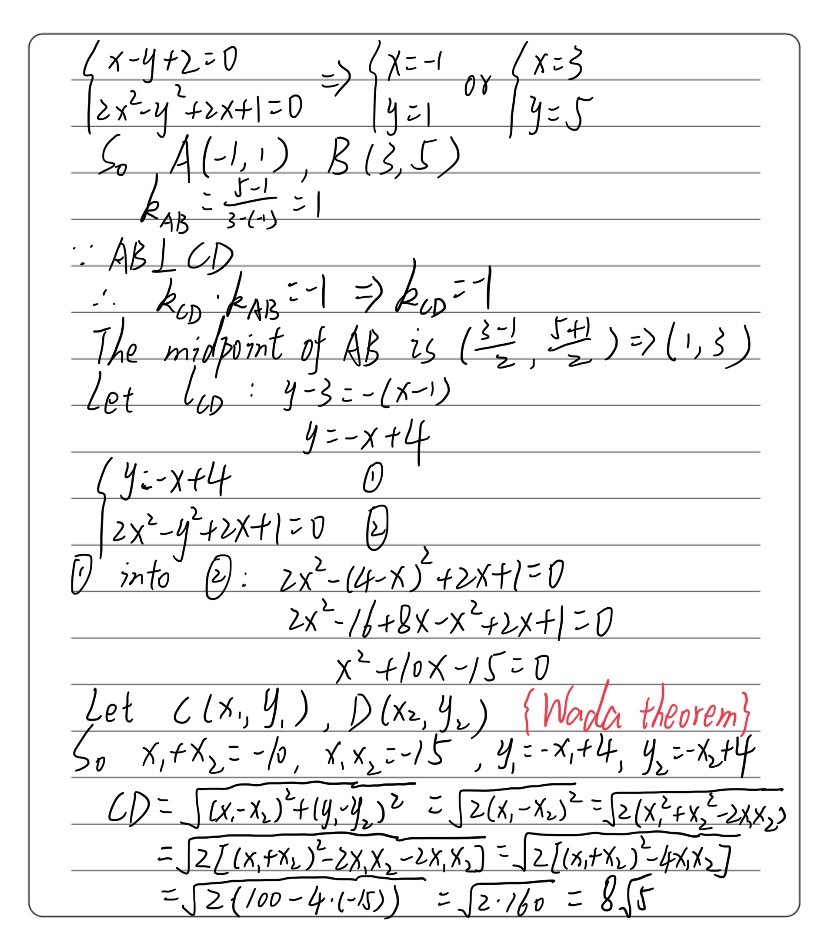 {x-y+2=0 2x²-y²+2x+1=0 => {x=-1 y=1 or {x=3 y=5
So A(-1,1), B(3,5)
k_AB = (5-1)/(3-(-1)) = 1
∵ AB⊥CD
∴ k_CD·k_AB=-1 => k_CD=-1
The midpoint of AB is ((3-1)/2, (5+1)/2) => (1,3)
Let l_CD: y-3=-(x-1)
y=-x+4
{y=-x+4 ①
2x²-y²+2x+1=0 ②
① into ②: 2x²-(4-x)²+2x+1=0
2x²-16+8x-x²+2x+1=0
x²+10x-15=0
Let C(x₁,y₁), D(x₂,y₂) {Wada theorem}
So x₁+x₂=-10, x₁x₂=-15, y₁=-x₁+4, y₂=-x₂+4
CD=√((x₁-x₂)²+(y₁-y₂)²) =√(2(x₁-x₂)²) =√(2(x₁²+x₂²-2x₁x₂))
=√(2[(x₁+x₂)²-2x₁x₂-2x₁x₂]) =√(2[(x₁+x₂)²-4x₁x₂])
=√(2(100-4·(-15))) =√(2·160) = 8√5